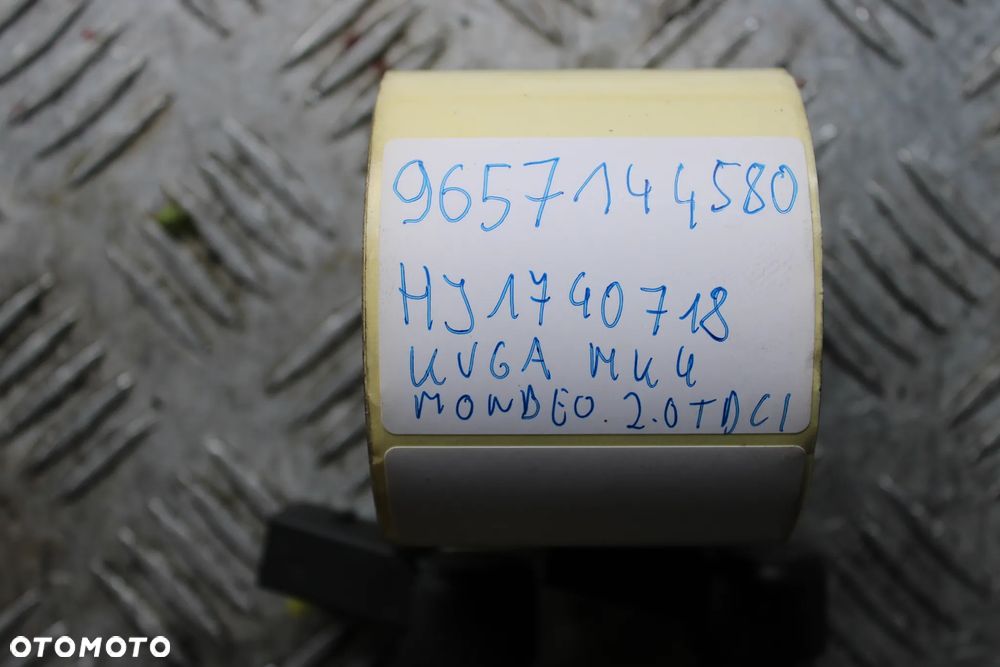 9657144580
HJ1740718
KUGA MK4
MONDEO. 2.0TDCI
OTOMOTO